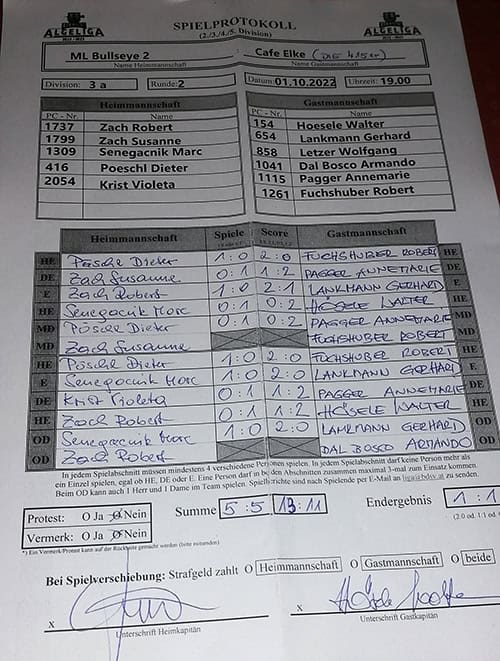 ALGELIGA SPIELPROTOKOLL ALGELIGA
(2./3./4./5. Division)
ML Bullseye 2 Cafe Elke (DIE 41Ser)
Name Heimmannschaft Name Gastmannschaft
Division: 3 a Runde: 2 Datum: 01.10.2022 Uhrzeit: 19.00
Heimmannschaft Gastmannschaft
PC - Nr. Name PC - Nr. Name
1737 Zach Robert 154 Hoesele Walter
1799 Zach Susanne 654 Lankmann Gerhard
1309 Senegacnik Marc 858 Letzer Wolfgang
416 Poeschl Dieter 1041 Dal Bosco Armando
2054 Krist Violeta 1115 Pagger Annemarie
1261 Fuchshuber Robert
Heimmannschaft Spiele Score Gastmannschaft
HE Pöschl Dieter 1:0 2:0 FUCHSHUBER ROBERT HE
DE Zach Susanne 0:1 1:2 PAGGER ANNEMARIE DE
E Zach Robert 1:0 2:1 LANKMANN GERHARD E
HE Senegacnik Marc 0:1 0:2 HÖSELE WALTER HE
MD Pöschl Dieter 0:1 0:2 PAGGER ANNEMARIE MD
MD Zach Susanne FUCHSHUBER ROBERT MD
HE Pöschl Dieter 1:0 2:0 FUCHSHUBER ROBERT HE
E Senegacnik Marc 1:0 2:0 LANKMANN GERHARD E
DE Krist Violeta 0:1 1:2 PAGGER ANNEMARIE DE
HE Zach Robert 0:1 1:2 HÖSELE WALTER HE
OD Senegacnik Marc 1:0 2:0 LANKMANN GERHARD OD
OD Zach Robert DAL BOSCO ARMANDO OD
In jedem Spielabschnitt müssen mindestens 4 verschiedene Personen spielen. In jedem Spielabschnitt darf keine Person mehr als
ein Einzel spielen, egal ob HE, DE oder E. Eine Person darf in beiden Abschnitten zusammen maximal 3-mal zum Einsatz kommen.
Beim OD kann auch 1 Herr und 1 Dame im Team spielen. Spielberichte sind nach Spielende per E-Mail an liga@bdsv.at zu senden.
Protest: O Ja O Nein Summe 5:5 13:11 Endergebnis 1:1
Vermerk: O Ja O Nein (2:0 od. 1:1 od.
*) Ein Vermerk/Protest kann auf der Rückseite gemacht werden (bitte ankreuzen)
Bei Spielverschiebung: Strafgeld zahlt O Heimmannschaft O Gastmannschaft O beide
x x
Unterschrift Heimkapitän Unterschrift Gastkapitän